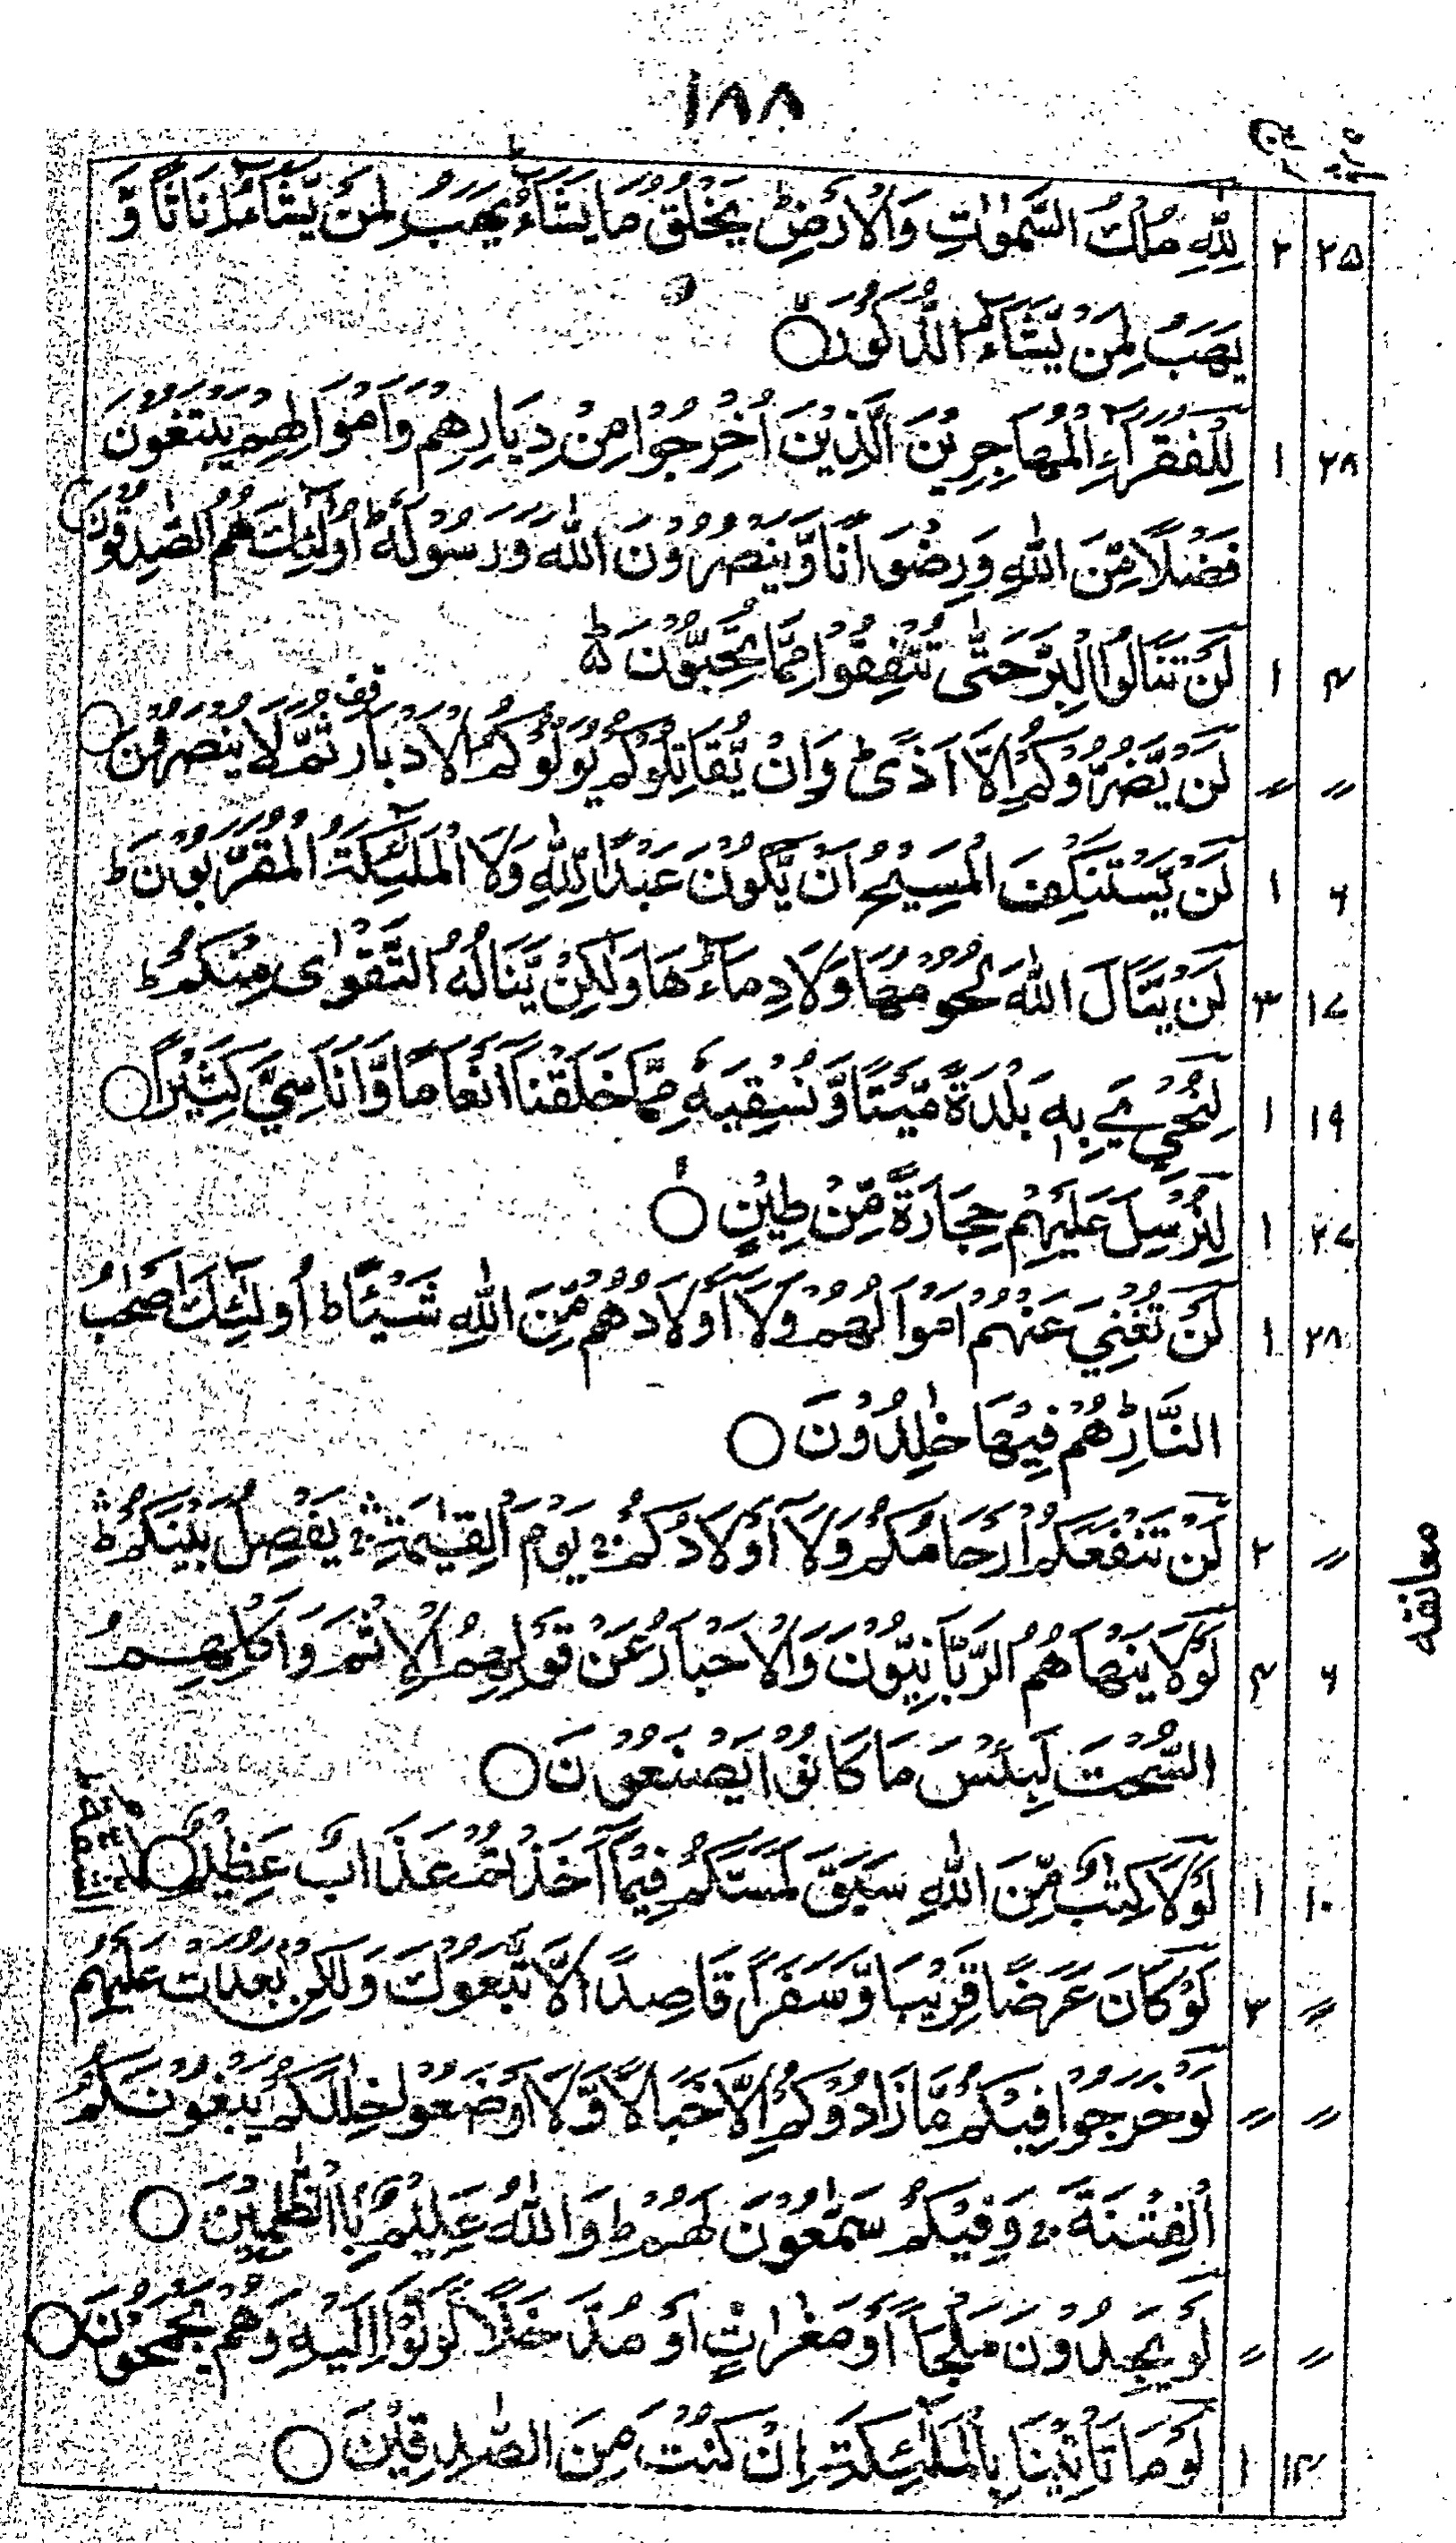 ١٨٨
٢٥ ٢ لِلّٰهِ مُلْكُ السَّمٰوٰتِ وَالْاَرْضِ يَخْلُقُ مَا يَشَآءُ يَهَبُ لِمَنْ يَّشَآءُ اِنَاثًا وَّ
يَهَبُ لِمَنْ يَّشَآءُ الذُّكُوْرَ ○
٢٨ ١ لِلْفُقَرَآءِ الْمُهَاجِرِيْنَ الَّذِيْنَ اُخْرِجُوْا مِنْ دِيَارِهِمْ وَاَمْوَالِهِمْ يَبْتَغُوْنَ
فَضْلًا مِّنَ اللّٰهِ وَرِضْوَانًا وَّيَنْصُرُوْنَ اللّٰهَ وَرَسُوْلَهٗ ط اُولٰٓئِكَ هُمُ الصّٰدِقُوْنَ ○
٤ ١ لَنْ تَنَالُوا الْبِرَّ حَتّٰى تُنْفِقُوْا مِمَّا تُحِبُّوْنَ ط
〃 〃 لَنْ يَّضُرُّوْكُمْ اِلَّا اَذًى ط وَاِنْ يُّقَاتِلُوْكُمْ يُوَلُّوْكُمُ الْاَدْبَارَ قف ثُمَّ لَا يُنْصَرُوْنَ ○
٦ ١ لَنْ يَّسْتَنْكِفَ الْمَسِيْحُ اَنْ يَّكُوْنَ عَبْدًا لِّلّٰهِ وَلَا الْمَلٰٓئِكَةُ الْمُقَرَّبُوْنَ ط
١٧ ٣ لَنْ يَّنَالَ اللّٰهَ لُحُوْمُهَا وَلَا دِمَآؤُهَا وَلٰكِنْ يَّنَالُهُ التَّقْوٰى مِنْكُمْ ط
١٩ ١ لِنُحْيِيَ بِهٖ بَلْدَةً مَّيْتًا وَّنُسْقِيَهٗ مِمَّا خَلَقْنَا اَنْعَامًا وَّاَنَاسِيَّ كَثِيْرًا ○
٢٧ ١ لِنُرْسِلَ عَلَيْهِمْ حِجَارَةً مِّنْ طِيْنٍ ○
٢٨ ١ لَنْ تُغْنِيَ عَنْهُمْ اَمْوَالُهُمْ وَلَا اَوْلَادُهُمْ مِّنَ اللّٰهِ شَيْئًا ط اُولٰٓئِكَ اَصْحٰبُ
النَّارِ ط هُمْ فِيْهَا خٰلِدُوْنَ ○
〃 ٢ لَنْ تَنْفَعَكُمْ اَرْحَامُكُمْ وَلَا اَوْلَادُكُمْ يَوْمَ الْقِيٰمَةِ يَفْصِلُ بَيْنَكُمْ ط
معانقه
٦ ٤ لَوْلَا يَنْهَاهُمُ الرَّبَّانِيُّوْنَ وَالْاَحْبَارُ عَنْ قَوْلِهِمُ الْاِثْمَ وَاَكْلِهِمُ
السُّحْتَ لَبِئْسَ مَا كَانُوْا يَصْنَعُوْنَ ○
١٠ ١ لَوْلَا كِتٰبٌ مِّنَ اللّٰهِ سَبَقَ لَمَسَّكُمْ فِيْمَا اَخَذْتُمْ عَذَابٌ عَظِيْمٌ ○
〃 ٢ لَوْ كَانَ عَرَضًا قَرِيْبًا وَّسَفَرًا قَاصِدًا لَّاتَّبَعُوْكَ وَلٰكِنْ بَعُدَتْ عَلَيْهِمُ
〃 〃 لَوْ خَرَجُوْا فِيْكُمْ مَّا زَادُوْكُمْ اِلَّا خَبَالًا وَّلَا اَوْضَعُوْا خِلٰلَكُمْ يَبْغُوْنَكُمُ
الْفِتْنَةَ ج وَفِيْكُمْ سَمّٰعُوْنَ لَهُمْ ط وَاللّٰهُ عَلِيْمٌ بِالظّٰلِمِيْنَ ○
〃 〃 لَوْ يَجِدُوْنَ مَلْجَاً اَوْ مَغٰرٰتٍ اَوْ مُدَّخَلًا لَّوَلَّوْا اِلَيْهِ وَهُمْ يَجْمَحُوْنَ ○
١٤ ١ لَوْ مَا تَاْتِيْنَا بِالْمَلٰٓئِكَةِ اِنْ كُنْتَ مِنَ الصّٰدِقِيْنَ ○